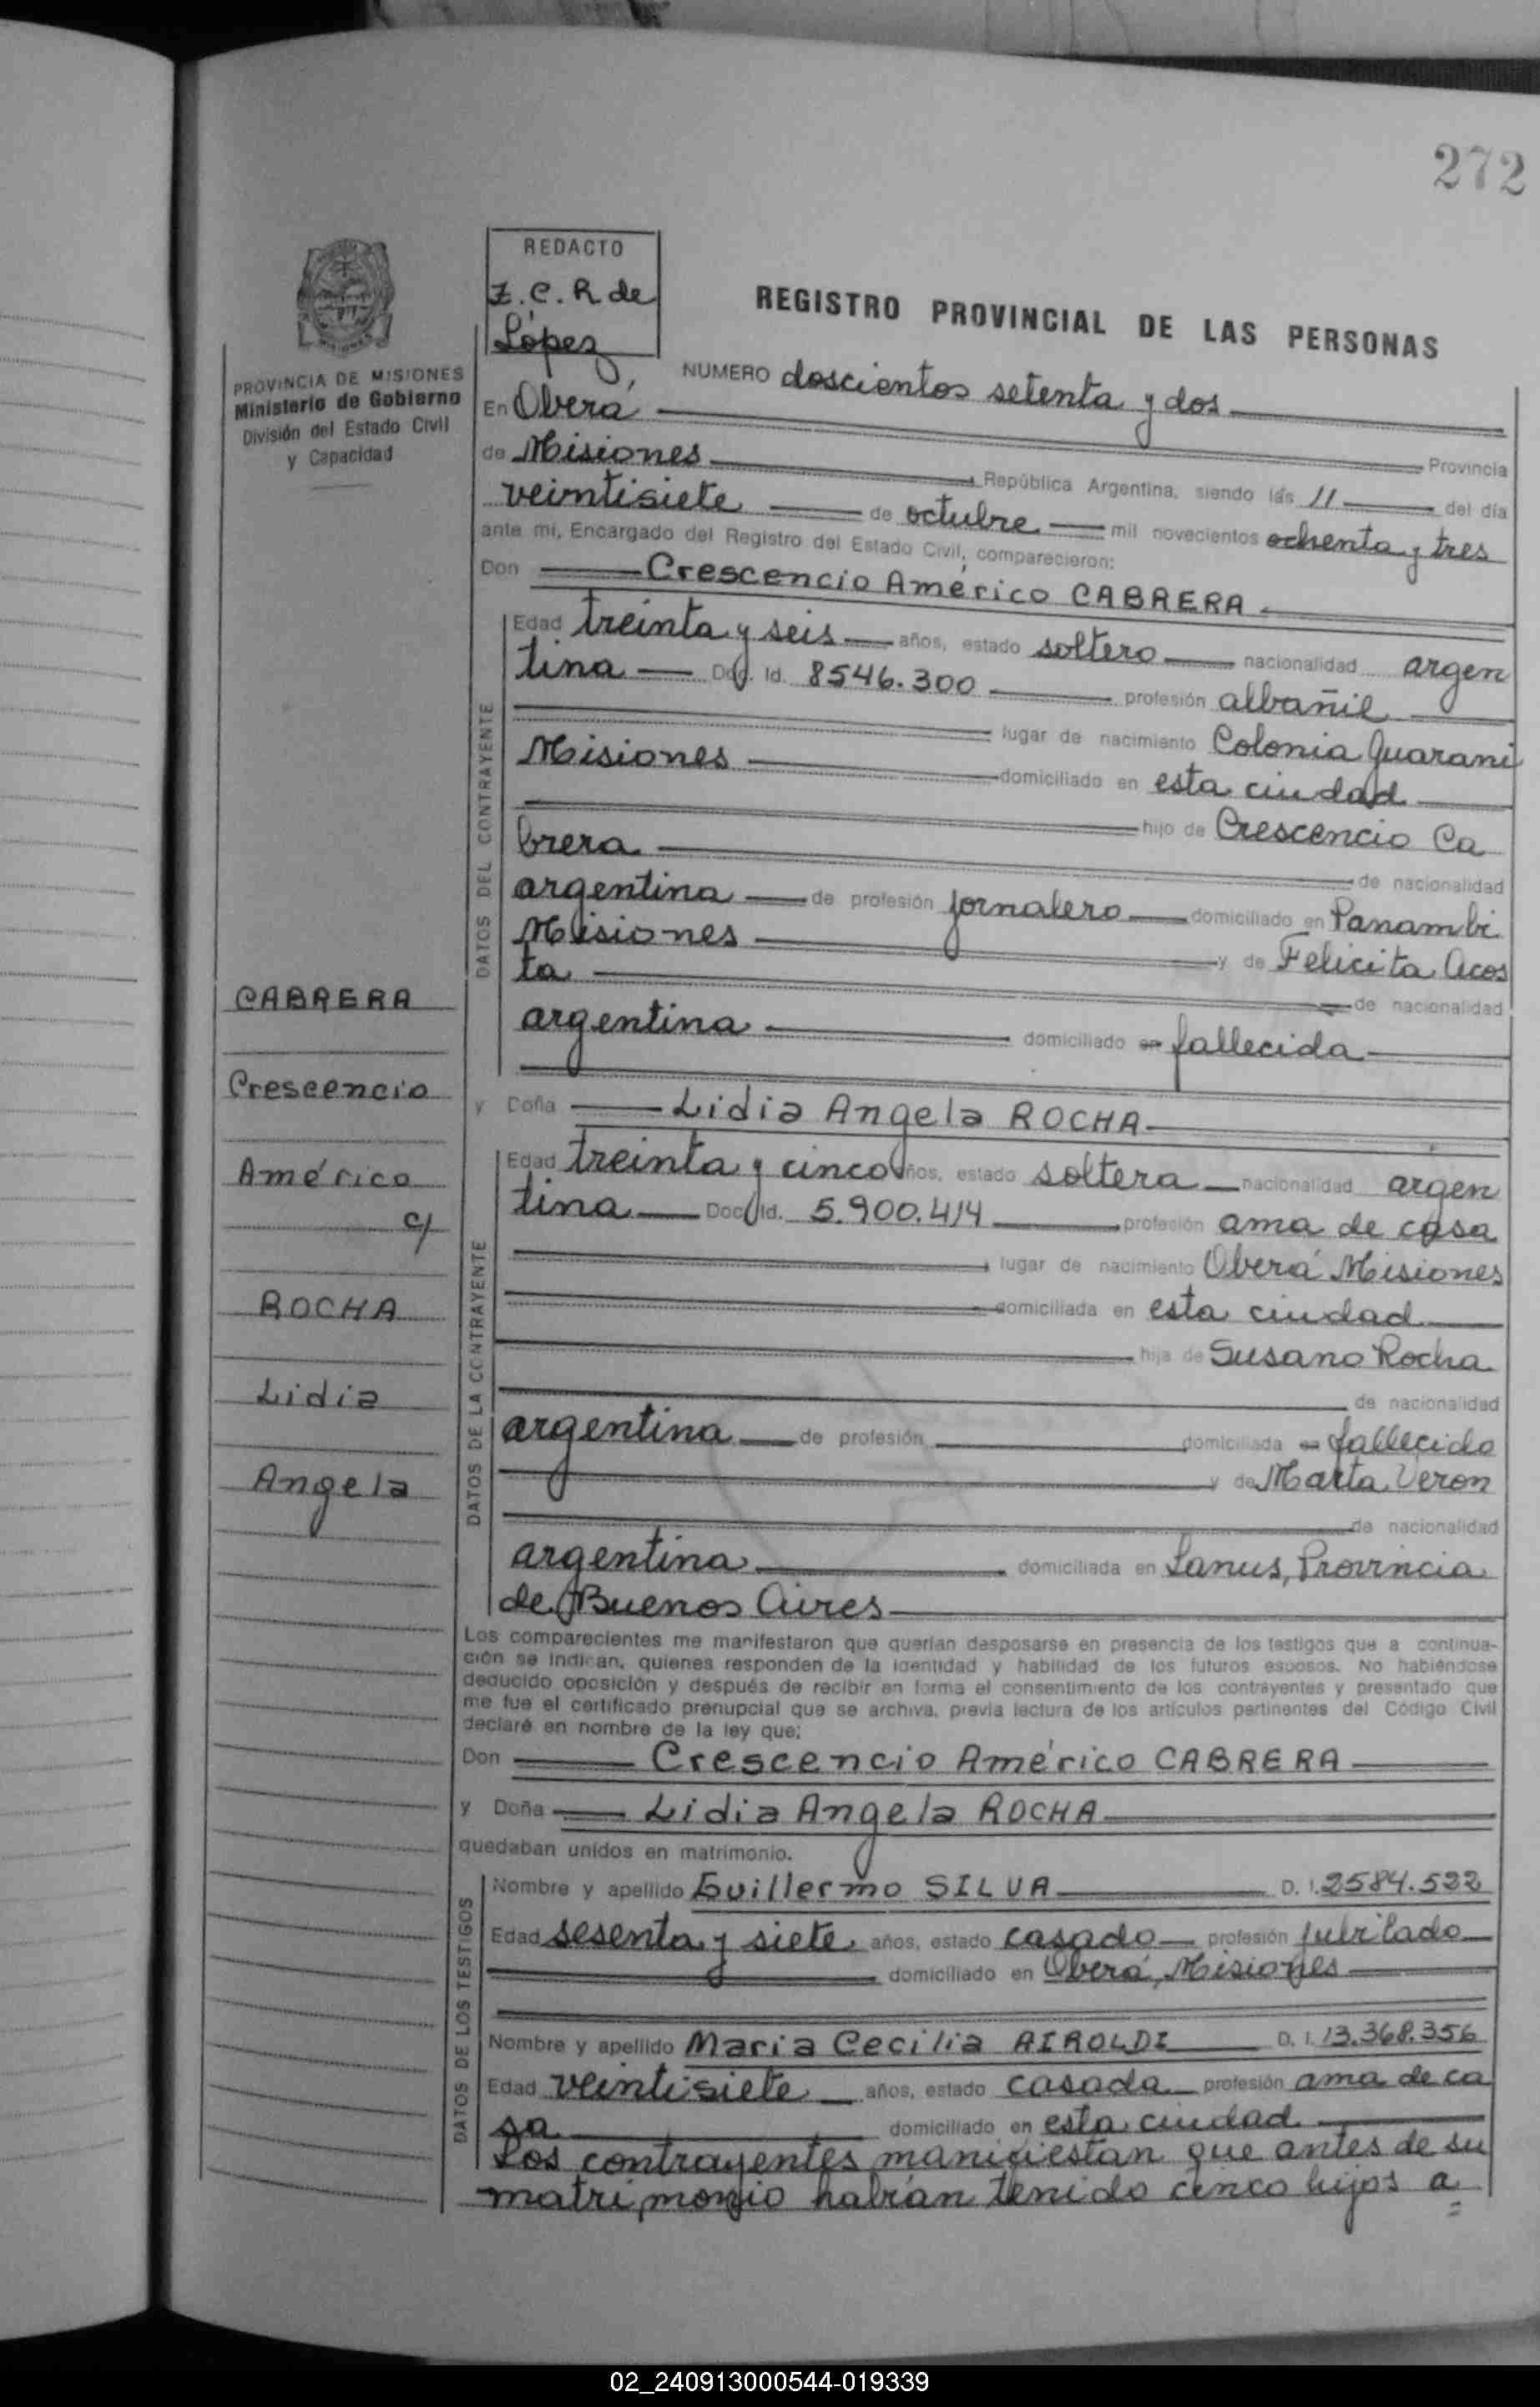 272
REDACTO
Z. C. R de
López
REGISTRO PROVINCIAL DE LAS PERSONAS
PROVINCIA DE MISIONES
Ministerio de Gobierno
División del Estado Civil
y Capacidad
NUMERO doscientos setenta y dos
En Oberá Provincia
de Misiones República Argentina, siendo las 11 del día
veintisiete de octubre mil novecientos ochenta y tres
ante mi, Encargado del Registro del Estado Civil, comparecieron:
Don Crescencio Américo CABRERA
DATOS DEL CONTRAYENTE
Edad treinta y seis años, estado soltero nacionalidad argen
tina Doc. Id. 8546.300 profesión albañil
lugar de nacimiento Colonia Guaraní
Misiones domiciliado en esta ciudad
hijo de Crescencio Ca
brera de nacionalidad
argentina de profesión jornalero domiciliado en Panambi
Misiones y de Felicita Acos
ta de nacionalidad
argentina domiciliado en fallecida
CABRERA
Crescencio
Américo
c/
ROCHA
Lidia
Angela
y Doña Lidia Angela ROCHA
DATOS DE LA CONTRAYENTE
Edad treinta y cinco años, estado soltera nacionalidad argen
tina Doc. Id. 5.900.414 profesión ama de casa
lugar de nacimiento Oberá Misiones
domiciliada en esta ciudad
hija de Susano Rocha
de nacionalidad
argentina de profesión domiciliada en fallecido
y de Marta Veron
de nacionalidad
argentina domiciliada en Lanus, Provincia
de Buenos Aires
Los comparecientes me manifestaron que querían desposarse en presencia de los testigos que a continua-
ción se indican, quienes responden de la identidad y habilidad de los futuros esposos. No habiéndose
deducido oposición y después de recibir en forma el consentimiento de los contrayentes y presentado que
me fue el certificado prenupcial que se archiva, previa lectura de los artículos pertinentes del Código Civil
declaré en nombre de la ley que:
Don Crescencio Américo CABRERA
y Doña Lidia Angela ROCHA
quedaban unidos en matrimonio.
DATOS DE LOS TESTIGOS
Nombre y apellido Guillermo SILVA D. I. 2584.522
Edad sesenta y siete años, estado casado profesión jubilado
domiciliado en Oberá, Misiones
Nombre y apellido Maria Cecilia AIROLDI D. I. 13.368.356
Edad veintisiete años, estado casada profesión ama de ca
sa domiciliado en esta ciudad
Los contrayentes manifiestan que antes de su
matrimonio habían tenido cinco hijos a
02_240913000544-019339